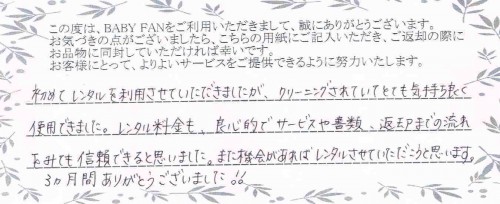 この度は、BABY FANをご利用いただきまして、誠にありがとうございます。
お気づきの点がございましたら、こちらの用紙にご記入いただき、ご返却の際に
お品物に同封していただければ幸いです。
お客様にとって、よりよいサービスをご提供できるように努力いたします。
初めてレンタルを利用させていただきましたが、クリーニングされていてとても気持ち良く
使用できました。レンタル料金も、良心的でサービスや書類、返却までの流れ
をみても信頼できると思いました。また機会があればレンタルさせていただこうと思います。
3ヵ月間ありがとうございました!!